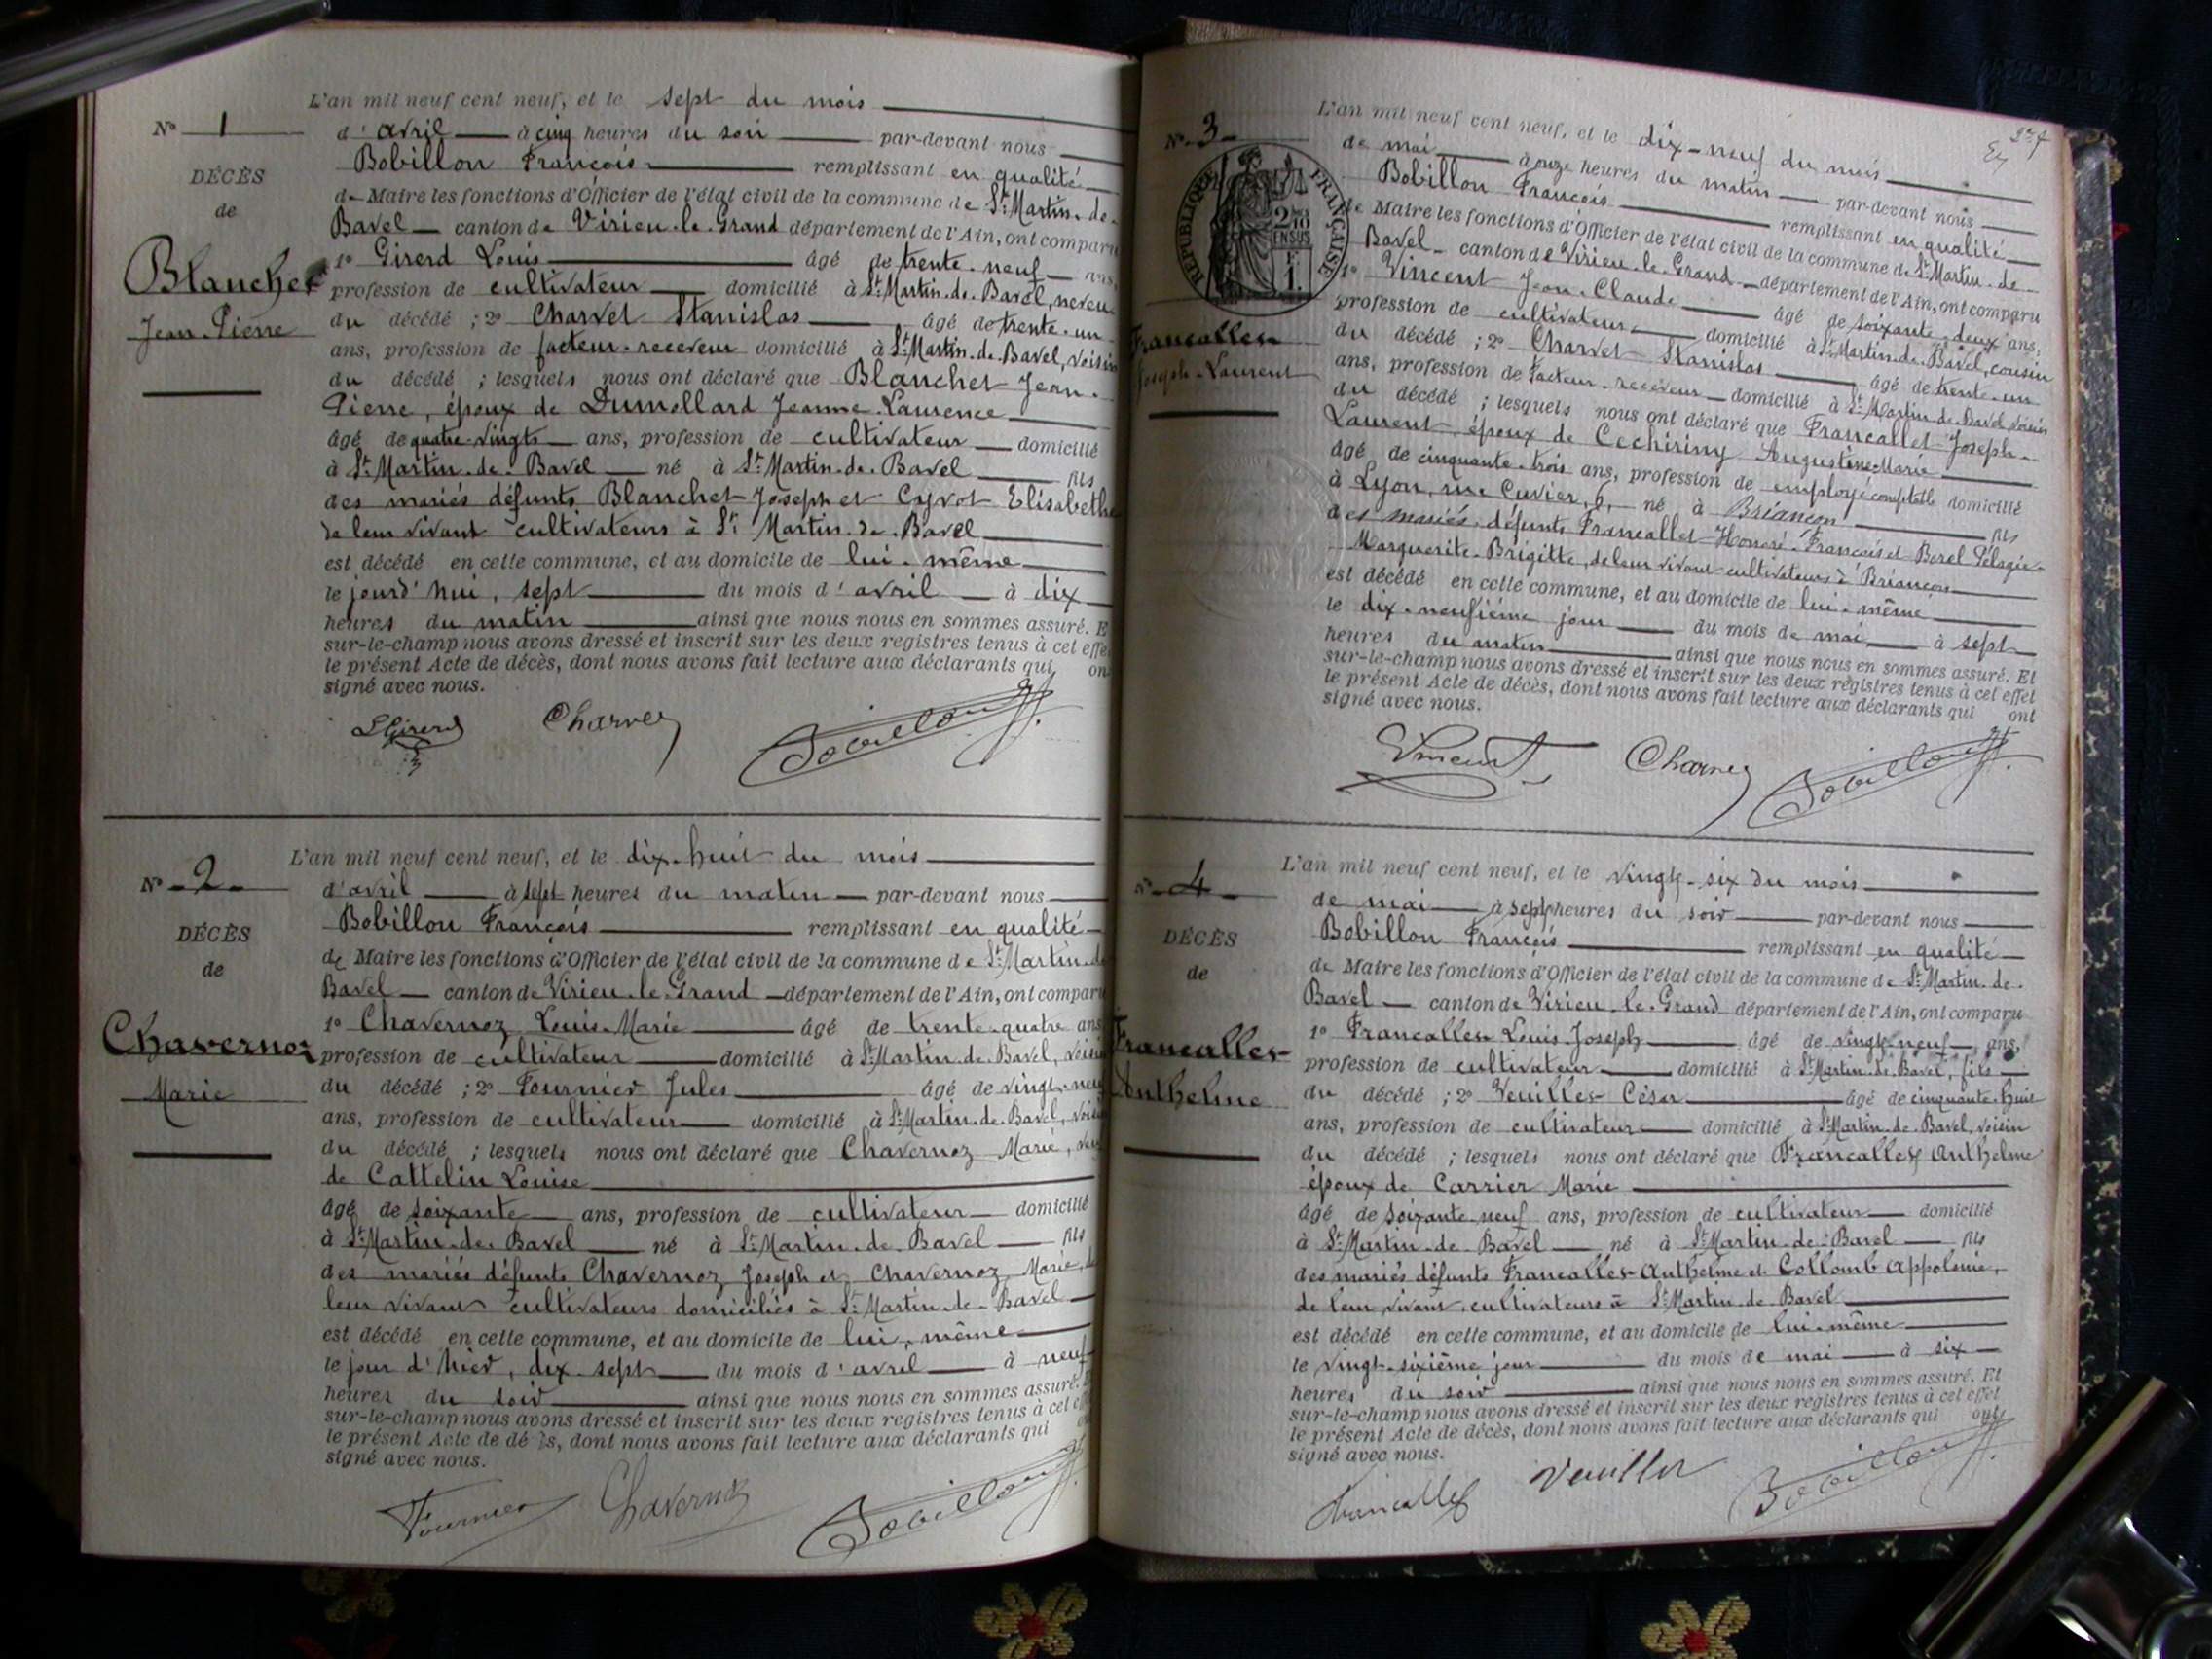 L'an mil neuf cent neuf, et le sept du mois
N° 1
d'avril à cinq heures du soir par-devant nous
Bobillon François remplissant en qualité
DÉCÈS
de Maire les fonctions d'Officier de l'état civil de la commune de St Martin-de-
de
Bavel canton de Virieu-le-Grand département de l'Ain, ont comparu
1° Girerd Louis âgé de trente-neuf ans,
Blanchet
profession de cultivateur domicilié à St Martin-de-Bavel, neveu
Jean-Pierre
du décédé ; 2° Charvet Stanislas âgé de trente-un
ans, profession de facteur-receveur domicilié à St Martin-de-Bavel, voisin
du décédé ; lesquels nous ont déclaré que Blanchet Jean-
Pierre, époux de Dumollard Jeanne-Laurence
âgé de quatre-vingts ans, profession de cultivateur domicilié
à St Martin-de-Bavel né à St Martin-de-Bavel fils
des mariés défunts Blanchet Joseph et Cyvot Elisabeth
de leur vivant cultivateurs à St Martin-de-Bavel
est décédé en cette commune, et au domicile de lui-même
le jourd'hui, sept du mois d'avril à dix
heures du matin ainsi que nous nous en sommes assuré. E
sur-le-champ nous avons dressé et inscrit sur les deux registres tenus à cet effe
le présent Acte de décès, dont nous avons fait lecture aux déclarants qui on
signé avec nous.
LGirerd Charvet Bobillon F.
L'an mil neuf cent neuf, et le dix-huit du mois
N° 2
d'avril à sept heures du matin par-devant nous
Bobillon François remplissant en qualité
DÉCÈS
de Maire les fonctions d'Officier de l'état civil de la commune de St Martin-de
de
Bavel canton de Virieu-le-Grand département de l'Ain, ont comparu
1° Chavernoz Louis-Marie âgé de trente-quatre ans
Chavernoz
profession de cultivateur domicilié à St Martin-de-Bavel, voisin
Marie
du décédé ; 2° Fournier Jules âgé de vingt-neuf
ans, profession de cultivateur domicilié à St Martin-de-Bavel, voisin
du décédé ; lesquels nous ont déclaré que Chavernoz Marie,
de Cattelin Louise
âgé de soixante ans, profession de cultivateur domicilié
à St Martin-de-Bavel né à St Martin-de-Bavel fils
des mariés défunts Chavernoz Joseph et Chavernoz Marie, de
leur vivant cultivateurs domiciliés à St Martin-de-Bavel
est décédé en cette commune, et au domicile de lui-même
le jour d'hier, dix-sept du mois d'avril à neuf
heures du soir ainsi que nous nous en sommes assuré.
sur-le-champ nous avons dressé et inscrit sur les deux registres tenus à cet
le présent Acte de dé s, dont nous avons fait lecture aux déclarants qui
signé avec nous.
Fournier Chavernoz Bobillon F.
L'an mil neuf cent neuf, et le dix-neuf du mois
N° 3
de mai à onze heures du matin par-devant nous
Bobillon François remplissant en qualité
RÉPUBLIQUE FRANÇAISE
de Maire les fonctions d'Officier de l'état civil de la commune de St Martin-de-
Bavel canton de Virieu-le-Grand département de l'Ain, ont comparu
1° Vincent Jean-Claude âgé de soixante-deux ans,
profession de cultivateur domicilié à St Martin-de-Bavel, cousin
Francallet
du décédé ; 2° Charvet Stanislas âgé de trente-un
Joseph-Laurent
ans, profession de facteur-receveur domicilié à St Martin-de-Bavel voisin
du décédé ; lesquels nous ont déclaré que Francallet Joseph-
Laurent, époux de Cechiriny Augustine-Marie
âgé de cinquante-trois ans, profession de employé comptable domicilié
à Lyon, rue Cuvier, 6, né à Briançon fils
des mariés défunts Francallet Honoré-François et Borel Pélagie-
Marguerite-Brigitte, de leur vivant cultivateurs à Briançon
est décédé en cette commune, et au domicile de lui-même
le dix-neufième jour du mois de mai à sept
heures du matin ainsi que nous nous en sommes assuré. Et
sur-le-champ nous avons dressé et inscrit sur les deux registres tenus à cet effet
le présent Acte de décès, dont nous avons fait lecture aux déclarants qui ont
signé avec nous.
Vincent Charvet Bobillon F.
L'an mil neuf cent neuf, et le vingt-six du mois
N° 4
de mai à sept heures du soir par-devant nous
Bobillon François remplissant en qualité
DÉCÈS
de Maire les fonctions d'Officier de l'état civil de la commune de St Martin-de-
de
Bavel canton de Virieu-le-Grand département de l'Ain, ont comparu
1° Francallet Louis-Joseph âgé de vingt-neuf ans,
Francallet
profession de cultivateur domicilié à St Martin-de-Bavel, fils
Anthelme
du décédé ; 2° Veuillet César âgé de cinquante-huit
ans, profession de cultivateur domicilié à St Martin-de-Bavel, voisin
du décédé ; lesquels nous ont déclaré que Francallet Anthelme
époux de Carrier Marie
âgé de soixante-neuf ans, profession de cultivateur domicilié
à St Martin-de-Bavel né à St Martin-de-Bavel fils
des mariés défunts Francallet Anthelme et Collomb Appolonie,
de leur vivant cultivateurs à St Martin-de-Bavel
est décédé en cette commune, et au domicile de lui-même
le vingt-sixième jour du mois de mai à six
heures du soir ainsi que nous nous en sommes assuré. Et
sur-le-champ nous avons dressé et inscrit sur les deux registres tenus à cet effet
le présent Acte de décès, dont nous avons fait lecture aux déclarants qui ont
signé avec nous.
Francallet Veuillet Bobillon F.